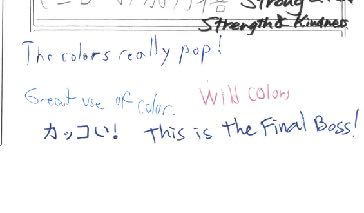 Strong
Strength & Kindness
The colors really pop!
Great use of color. Wild colors
カッコい! This is the Final Boss!